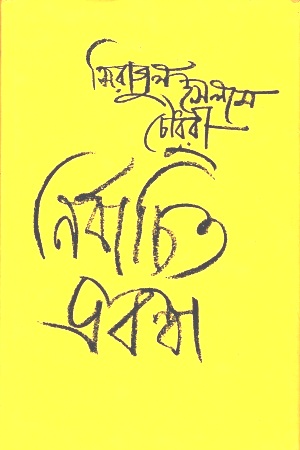 সিরাজুল
ইসলাম
চৌধুরী
নির্বাচিত
প্রবন্ধ